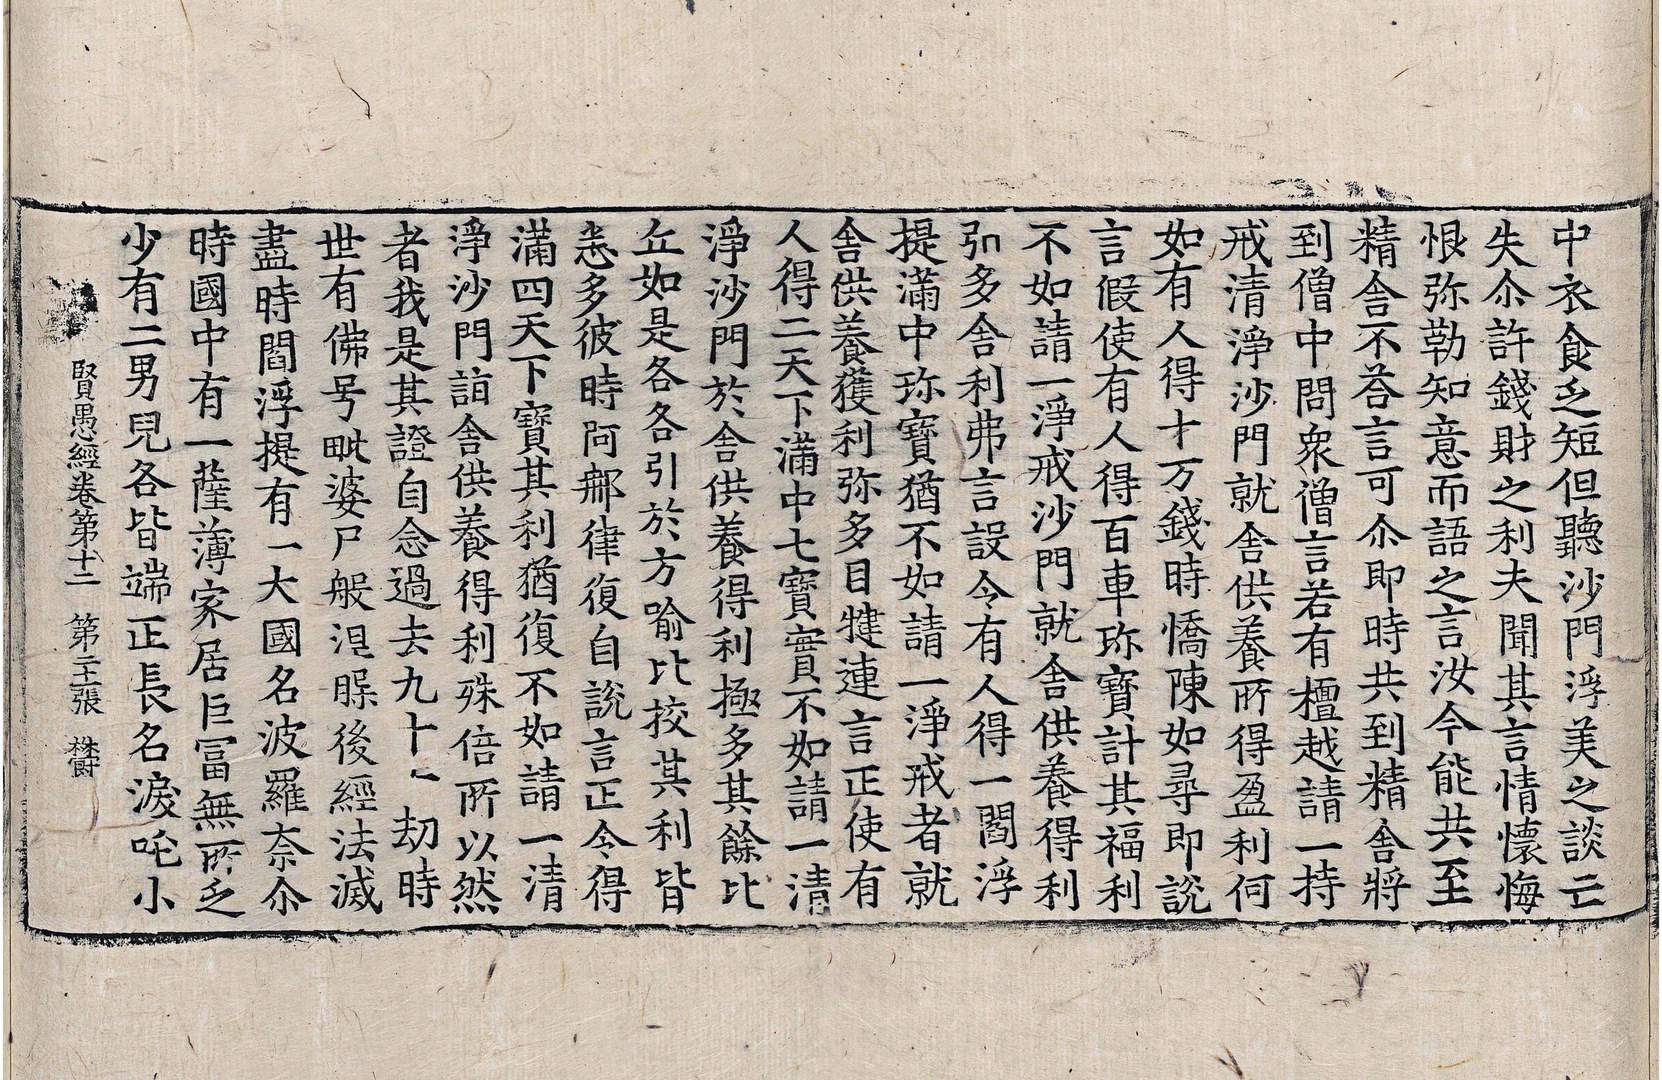 中衣食乏短但聽沙門浮美之談亡
失尒許錢財之利夫聞其言情懷悔
恨弥勒知意而語之言汝今能共至
精舍不荅言可尒即時共到精舍將
到僧中問衆僧言若有檀越請一持
戒清淨沙門就舍供養所得盈利何
如有人得十万錢時憍陳如尋即說
言假使有人得百車珎寶計其福利
不如請一淨戒沙門就舍供養得利
弘多舍利弗言設令有人得一閻浮
提滿中珎寶猶不如請一淨戒者就
舍供養獲利弥多目犍連言正使有
人得二天下滿中七寶實不如請一清
淨沙門於舍供養得利極多其餘比
丘如是各各引於方喻比挍其利皆
悉多彼時阿那律復自說言正令得
滿四天下寶其利猶復不如請一清
淨沙門詣舍供養得利殊倍所以然
者我是其證自念過去九十一劫時
世有佛号毗婆尸般涅槃後經法滅
盡時閻浮提有一大國名波羅奈尒
時國中有一薩薄家居巨富無所乏
少有二男兒各皆端正長名淚吒小
賢愚經卷第十二 第二十三張 欝